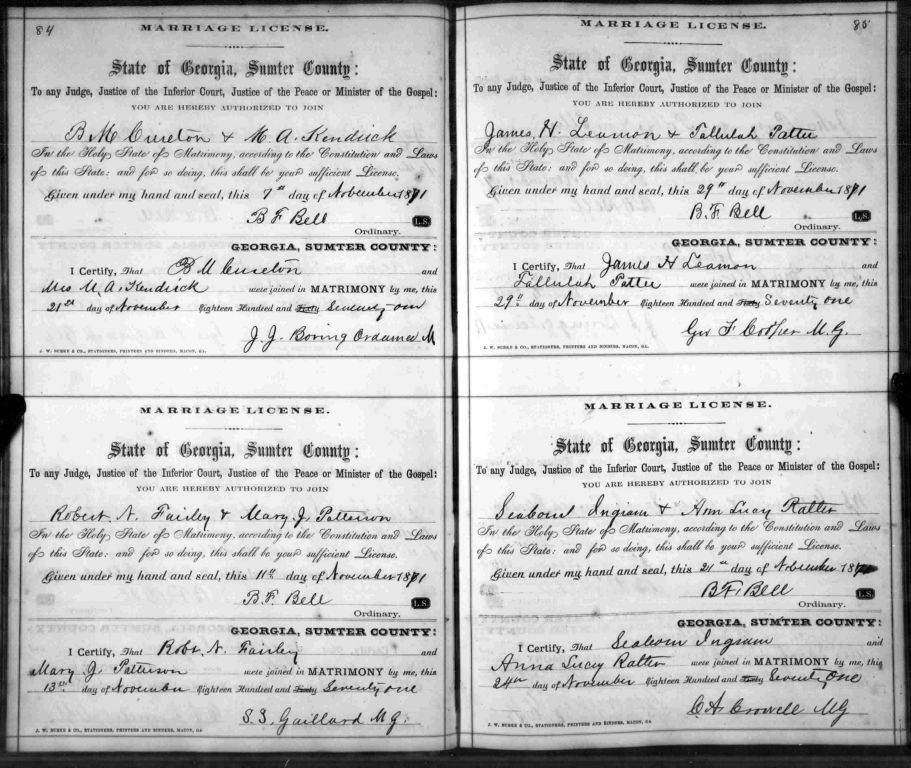 84
MARRIAGE LICENSE.
State of Georgia, Sumter County:
To any Judge, Justice of the Inferior Court, Justice of the Peace or Minister of the Gospel:
YOU ARE HEREBY AUTHORIZED TO JOIN
B M Cureton & M. A. Kendrick
In the Holy State of Matrimony, according to the Constitution and Laws
of this State: and for so doing, this shall be your sufficient License.
Given under my hand and seal, this 7th day of November 1871
B F Bell L.S.
Ordinary.
GEORGIA, SUMTER COUNTY:
I Certify, That B M Cureton and
Mrs M. A. Kendrick were joined in MATRIMONY by me, this
21st day of November Eighteen Hundred and Sixty Seventy one
J. J. Boring Ordained M
J. W. BURKE & CO., STATIONERS, PRINTERS AND BINDERS, MACON, GA.
MARRIAGE LICENSE.
State of Georgia, Sumter County:
To any Judge, Justice of the Inferior Court, Justice of the Peace or Minister of the Gospel:
YOU ARE HEREBY AUTHORIZED TO JOIN
Robert N. Fairley & Mary J. Patterson
In the Holy State of Matrimony, according to the Constitution and Laws
of this State: and for so doing, this shall be your sufficient License.
Given under my hand and seal, this 11th day of November 1871
B F. Bell L.S.
Ordinary.
GEORGIA, SUMTER COUNTY:
I Certify, That Robt. N. Fairley and
Mary J. Patterson were joined in MATRIMONY by me, this
13th day of November Eighteen Hundred and Sixty Seventy one
S. S. Gaillard M G.
J. W. BURKE & CO., STATIONERS, PRINTERS AND BINDERS, MACON, GA
85
MARRIAGE LICENSE.
State of Georgia, Sumter County:
To any Judge, Justice of the Inferior Court, Justice of the Peace or Minister of the Gospel:
YOU ARE HEREBY AUTHORIZED TO JOIN
James, H. Leamon & Tallulah Pattee
In the Holy State of Matrimony, according to the Constitution and Laws
of this State: and for so doing, this shall be your sufficient License.
Given under my hand and seal, this 29th day of November 1871
B. F. Bell L.S.
Ordinary.
GEORGIA, SUMTER COUNTY:
I Certify, That James H Leamon and
Tallulah Pattee were joined in MATRIMONY by me, this
29th day of November Eighteen Hundred and Sixty Seventy one
F Cooper M. G.
J. W. BURKE & CO., STATIONERS, PRINTERS AND BINDERS, MACON, GA.
MARRIAGE LICENSE.
State of Georgia, Sumter County:
To any Judge, Justice of the Inferior Court, Justice of the Peace or Minister of the Gospel:
YOU ARE HEREBY AUTHORIZED TO JOIN
Seaborn Ingram & Ann Lucy Ratter
In the Holy State of Matrimony, according to the Constitution and Laws
of this State: and for so doing, this shall be your sufficient License.
Given under my hand and seal, this 21st day of November 1871
B. F. Bell L.S.
Ordinary.
GEORGIA, SUMTER COUNTY:
I Certify, That Seaborn Ingram and
Anna Lucy Ratter were joined in MATRIMONY by me, this
24th day of November Eighteen Hundred and Sixty Seventy One
C A Crowell M G
J. W. BURKE & CO., STATIONERS, PRINTERS AND BINDERS, MACON, GA